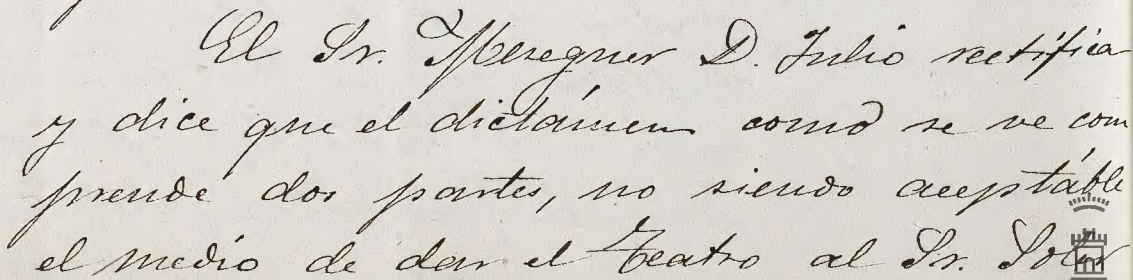 El Sr. Meseguer D. Julio rectifica
y dice que el dictámen como se ve com
prende dos partes, no siendo aceptable
el medio de dar el Teatro al Sr.